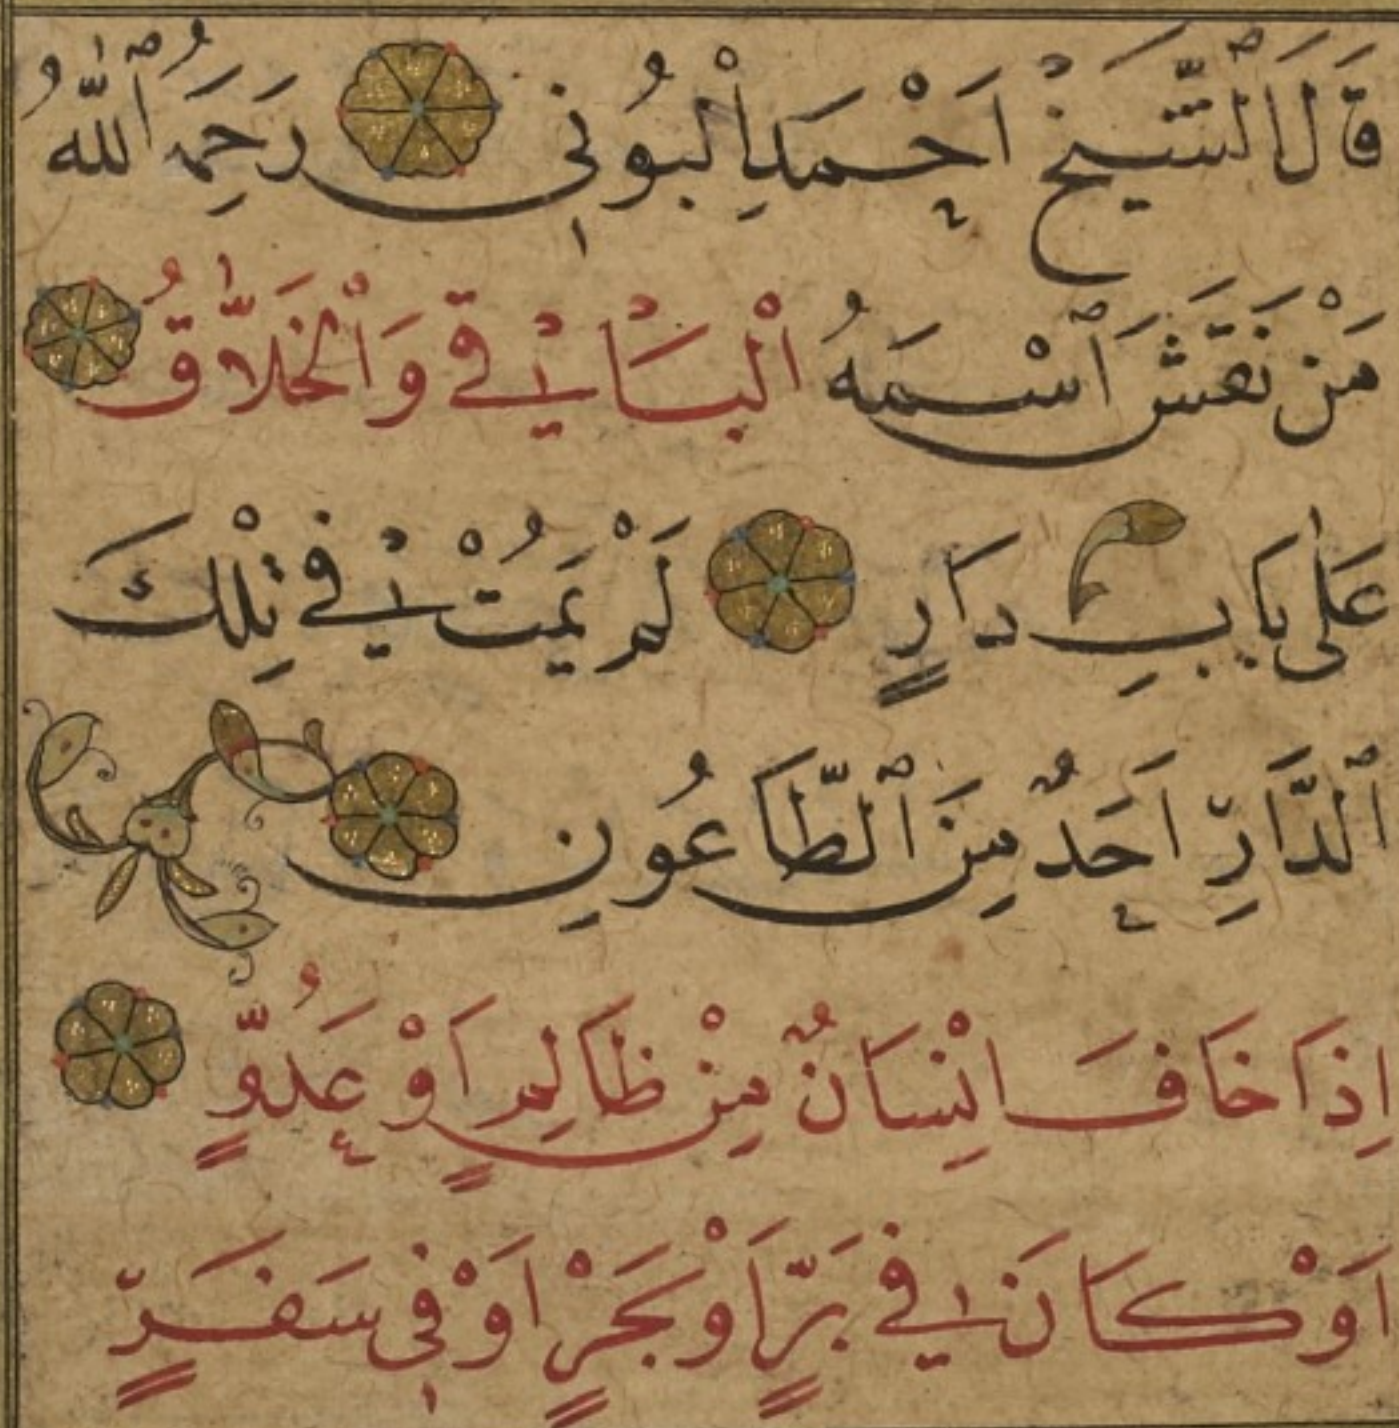 قَالَ ٱلشَّيْخُ اَحْمَدِ اْلبُونِى رَحِمَهُ ٱللّٰهُ
مَنْ نَقَشَ ٱسْمَهُ اْلبَاقِي وَاْلخَلَّاقُ
عَلٰى بَابِ دَارٍ لَمْ يَمُتْ فِي تِلْكَ
ٱلدَّارِ اَحَدٌ مِنَ ٱلطَّاعُونِ
اِذَا خَافَ اِنْسَانٌ مِنْ ظَالِمٍ اَوْ عَدُوٍّ
اَوْ كَانَ فِي بَرٍّ اَوْ بَحْرٍ اَوْ فِى سَفَرٍ